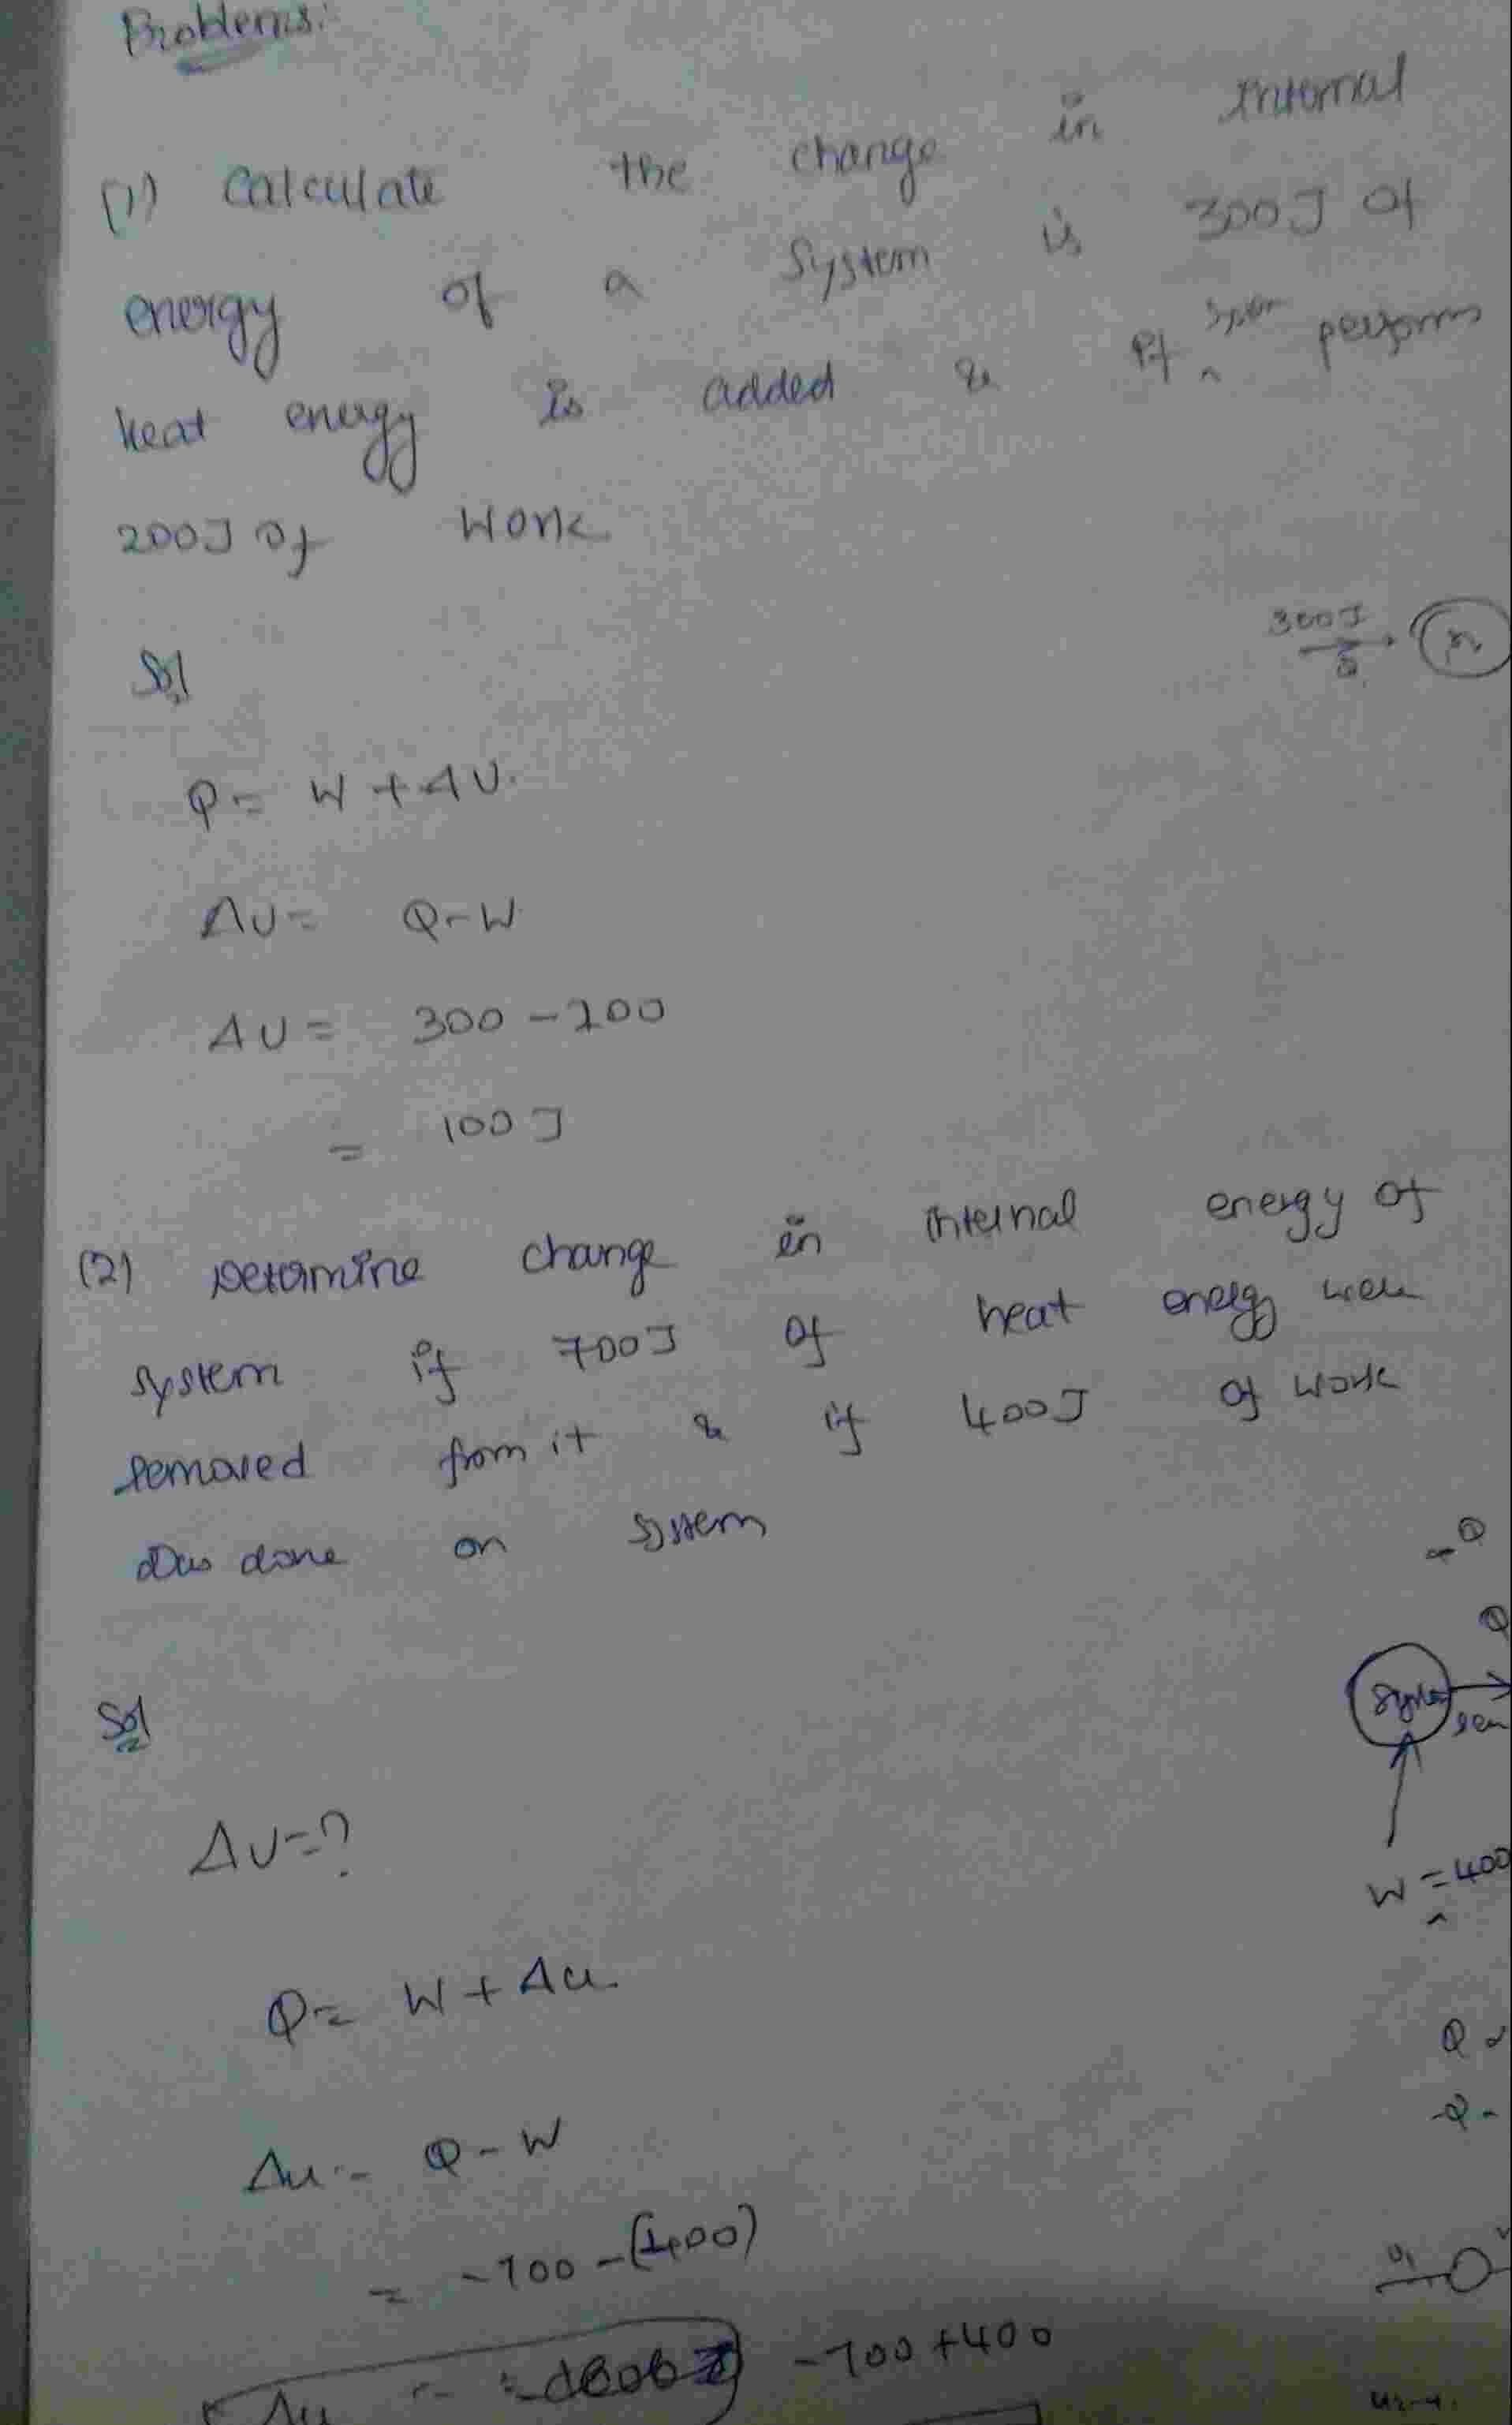 Problems:
(1) Calculate the change in internal
energy of a system is 300J of
heat energy is added & if system performs
200J of work
300J
Sol
Q = W + ΔU.
ΔU = Q - W
ΔU = 300 - 200
= 100 J
(2) Determine change in internal energy of
system if 700J of heat energy were
removed from it & if 400J of work
was done on system
-Q
Q
Sol
System
ΔU = ?
W = 400
Q = W + Δu
Q
-Q -
Δu = Q - W
= -700 - (400)
U1
-700 + 400
Δu =